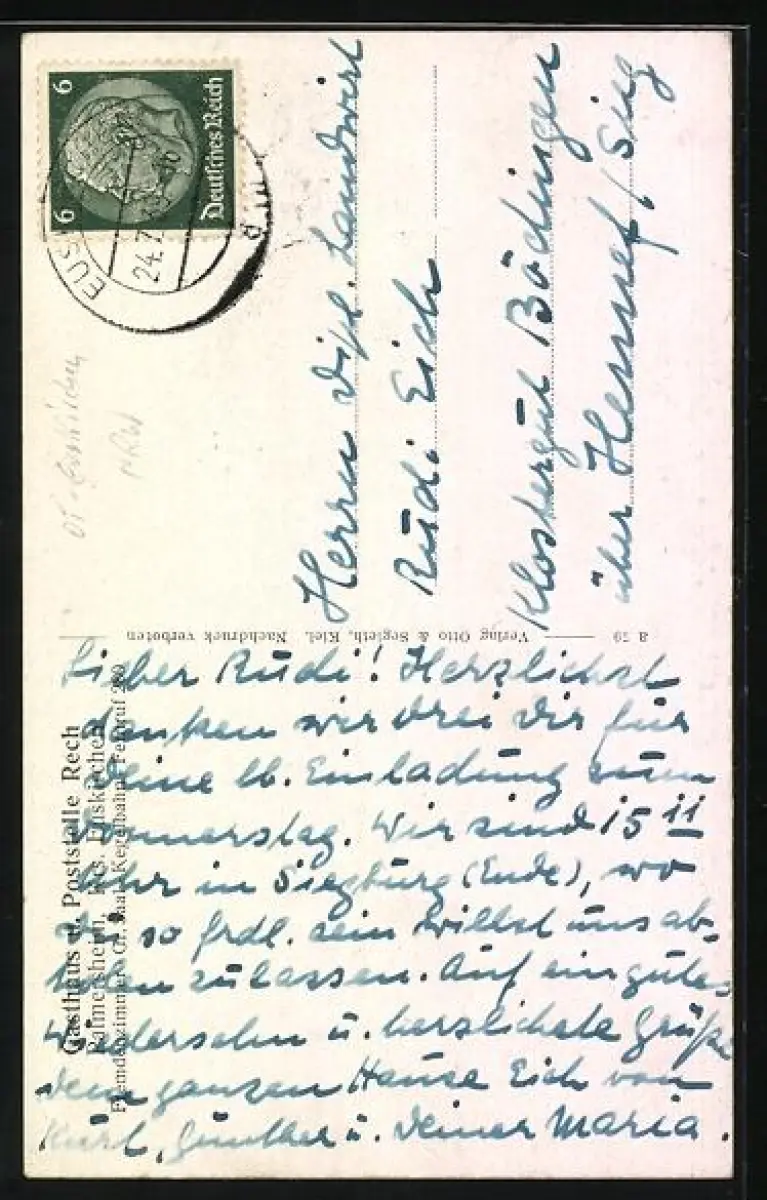 6
6
Deutsches Reich
EUS
24.7
Herrn Dipl. Landwirt
Rudi Eich
Klostergut Bödingen
über Hennef / Sieg
Euskirchen
NRW
8 79
Verlag Otto & Segieth, Kiel. Nachdruck verboten
Gasthaus u. Poststelle Rech
Palmersheim, Krs. Euskirchen
Fremdenzimmer, Gr. Saal, Kegelbahn, Fernruf 280
Lieber Rudi! Herzlichst
danken wir drei Dir für
Deine lb. Einladung zum
Donnerstag. Wir sind 15 11
Uhr in Siegburg (Ende), wo
Du so frdl. sein willst uns ab-
holen zu lassen. Auf ein gutes
Wiedersehn u. herzlichste Grüße
dem ganzen Hause Eich von
Kurt, Günther u. Deiner Maria.